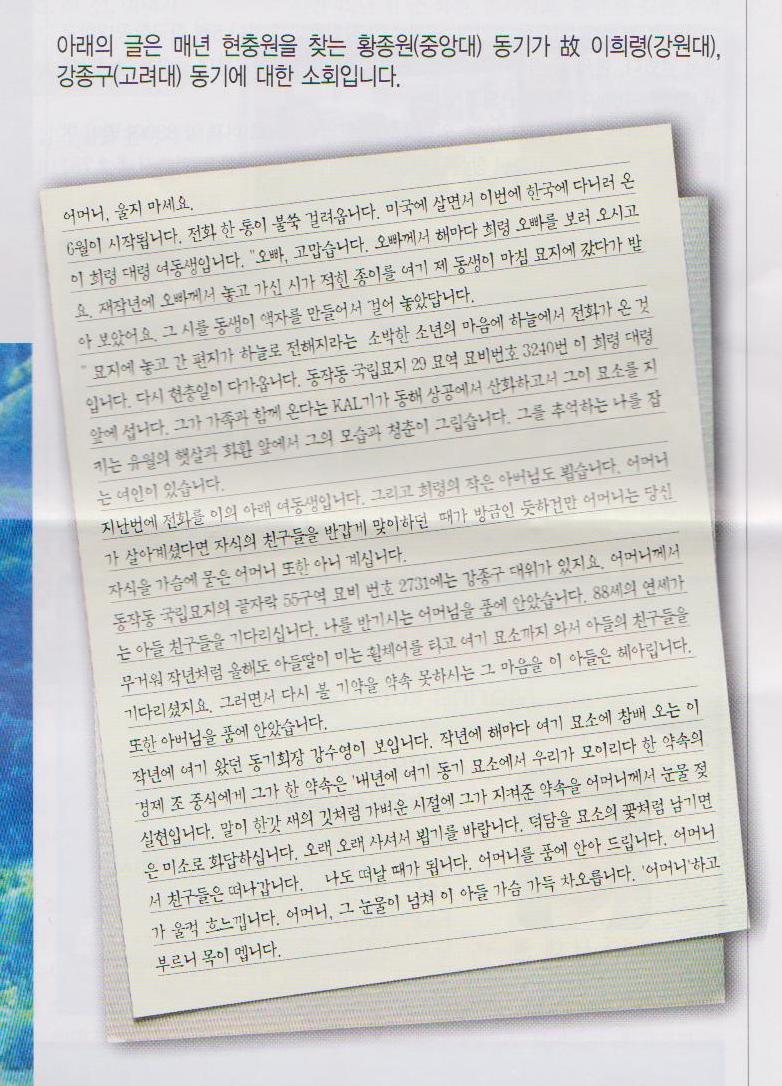 아래의 글은 매년 현충원을 찾는 황종원(중앙대) 동기가 故 이희령(강원대),
강종구(고려대) 동기에 대한 소회입니다.
어머니, 울지 마세요.
6월이 시작됩니다. 전화 한 통이 불쑥 걸려옵니다. 미국에 살면서 이번에 한국에 다니러 온
이 희령 대령 여동생입니다. "오빠, 고맙습니다. 오빠께서 해마다 희령 오빠를 보러 오시고
요. 재작년에 오빠께서 놓고 가신 시가 적힌 종이를 여기 제 동생이 마침 묘지에 갔다가 받
아 보았어요. 그 시를 동생이 액자를 만들어서 걸어 놓았답니다.
" 묘지에 놓고 간 편지가 하늘로 전해지라는 소박한 소년의 마음에 하늘에서 전화가 온 것
입니다. 다시 현충일이 다가옵니다. 동작동 국립묘지 29 묘역 묘비번호 3240번 이 희령 대령
앞에 섭니다. 그가 가족과 함께 온다는 KAL기가 동해 상공에서 산화하고서 그이 묘소를 지
키는 유월의 햇살과 화환 앞에서 그의 모습과 청춘이 그립습니다. 그를 추억하는 나를 잡
는 여인이 있습니다.
지난번에 전화를 이의 아래 여동생입니다. 그리고 희령의 작은 아버님도 뵙습니다. 어머니
가 살아계셨다면 자식의 친구들을 반갑게 맞이하던 때가 방금인 듯하건만 어머니는 당신
자식을 가슴에 묻은 어머니 또한 아니 계십니다.
동작동 국립묘지의 끝자락 55구역 묘비 번호 2731에는 강종구 대위가 있지요. 어머니께서
는 아들 친구들을 기다리십니다. 나를 반기시는 어머님을 품에 안았습니다. 88세의 연세가
무거워 작년처럼 올해도 아들딸이 미는 휠체어를 타고 여기 묘소까지 와서 아들의 친구들을
기다리셨지요. 그러면서 다시 볼 기약을 약속 못하시는 그 마음을 이 아들은 헤아립니다.
또한 아버님을 품에 안았습니다.
작년에 여기 왔던 동기회장 강수영이 보입니다. 작년에 해마다 여기 묘소에 참배 오는 이
경제 조 중식에게 그가 한 약속은 '내년에 여기 동기 묘소에서 우리가 모이리다 한 약속의
실현입니다. 말이 한갓 새의 깃처럼 가벼운 시절에 그가 지켜준 약속을 어머니께서 눈물 젖
은 미소로 화답하십니다. 오래 오래 사셔서 뵙기를 바랍니다. 덕담을 묘소의 꽃처럼 남기면
서 친구들은 떠나갑니다. 나도 떠날 때가 됩니다. 어머니를 품에 안아 드립니다. 어머니
가 울컥 흐느낍니다. 어머니, 그 눈물이 넘쳐 이 아들 가슴 가득 차오릅니다. '어머니'하고
부르니 목이 멥니다.